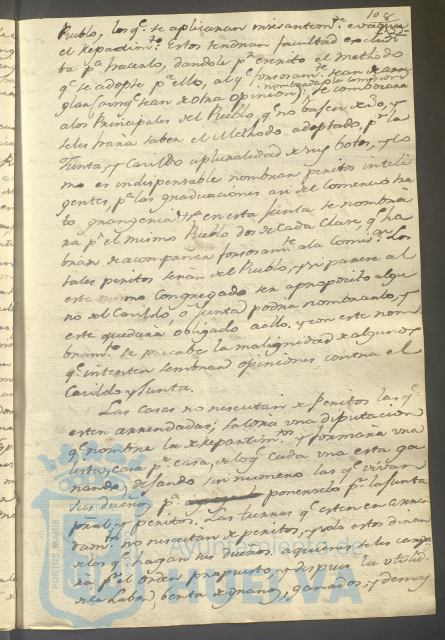 108
Pueblo, los q.e se aplicaran incesantem.te evaquar
el Repartim.to Estos tendran facultad exclusi
ba p.a hacerlo, dandole p.r escrito el methodo
q.e se adopte p.a ello, al q.e forzosam.te sean de arre
glar, aunq.e sean de otra opinion;
nombrada la comision
se combocara
a los Principales del Pueblo, q.e no bajen de 20, y
se les hara saber el Methodo adoptado, p.r la
Junta, y Cavildo a pluralidad de sus botos, y co
mo es indispensable nombrar peritos inteli
gentes, p.a las graduaciones asi del comercio ha
to grangeria &.a en esta Junta se nombra
ra p.r el mismo Pueblo dos de cada clase q.e ha
bran de acompañar forzosam.te a la Comis.on Los
tales peritos seran del Pueblo, y si parece al
este mismo Congregado ser aproposito algu
no del Cavildo, o Junta podra nombrarlo, y
este quedara obligado a ello, y con este nom
bram.to se precabe la malignidad de algunos
q.e intenten sembrar opiniones contra el
Cavildo y Junta.
Las Casas no nescesitan de peritos las q.e
esten arrendadas; saldra una diputacion
q.e nombre la de Repartim.to y formara una
lista, casa p.r casa, de lo q.e cada una esta ga
nando, dejando sin numero las q.e vivan
sus dueños p.a ponerselo p.r la Junta
y peritos. Las tierras q.e esten en arren
dam.to no nescesitan de peritos, y solo estos diran
de las q.e hagan sus dueños a quienes se les carga
ra p.r el orden propuesto y despues la utilid.d
de la Labor, benta de granos, ganados, y demas
PORTUS MARIS
Ayuntamiento de
HUELVA